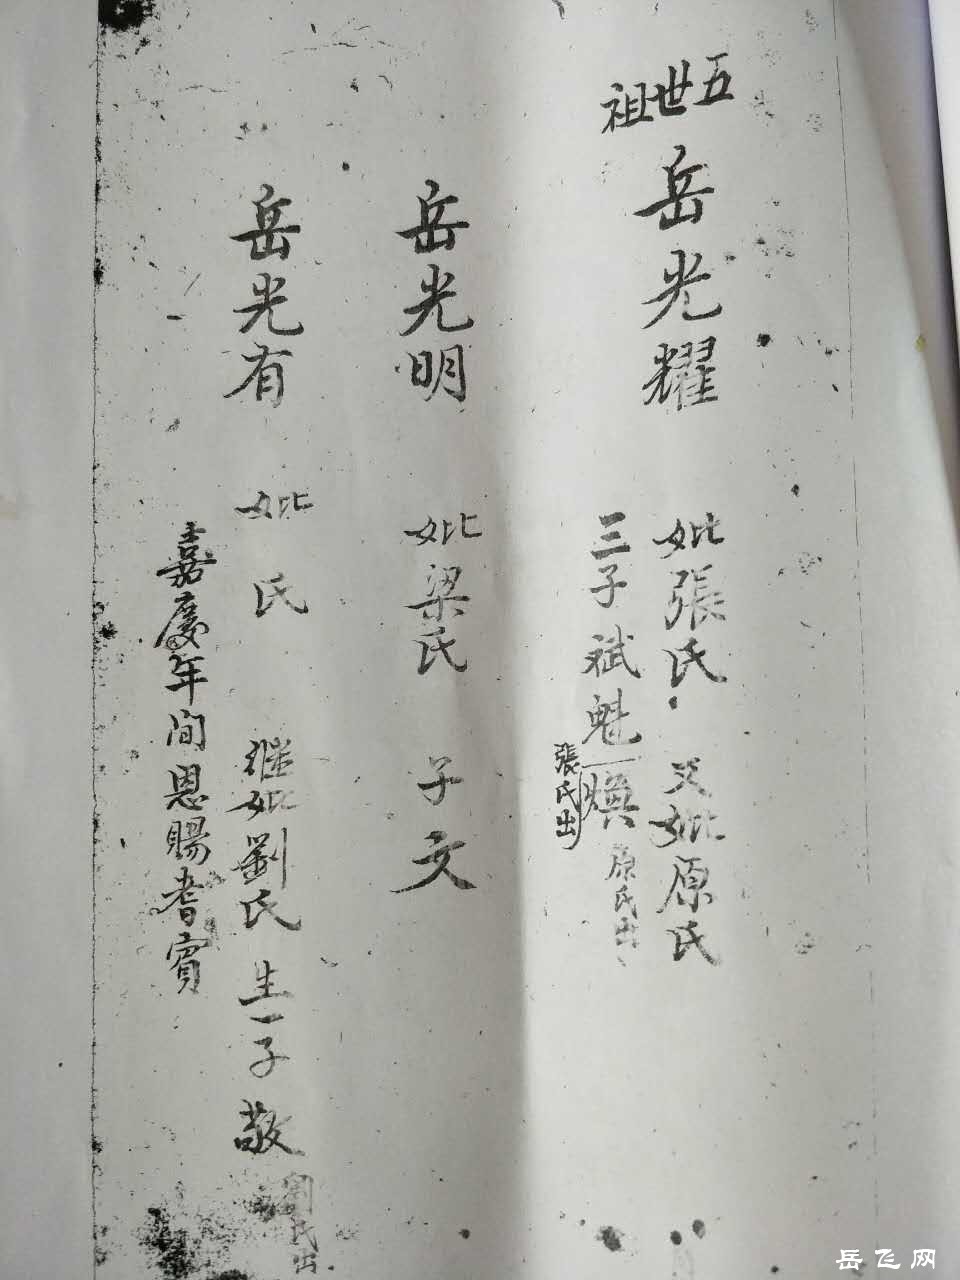 五世祖
岳光耀
妣張氏 又妣原氏
三子斌魁煥
張氏出
原氏出
岳光明 妣梁氏 子文
岳光有 妣 氏 继妣劉氏 生一子敬
劉氏出
嘉慶年间恩賜耆賓
岳飞网